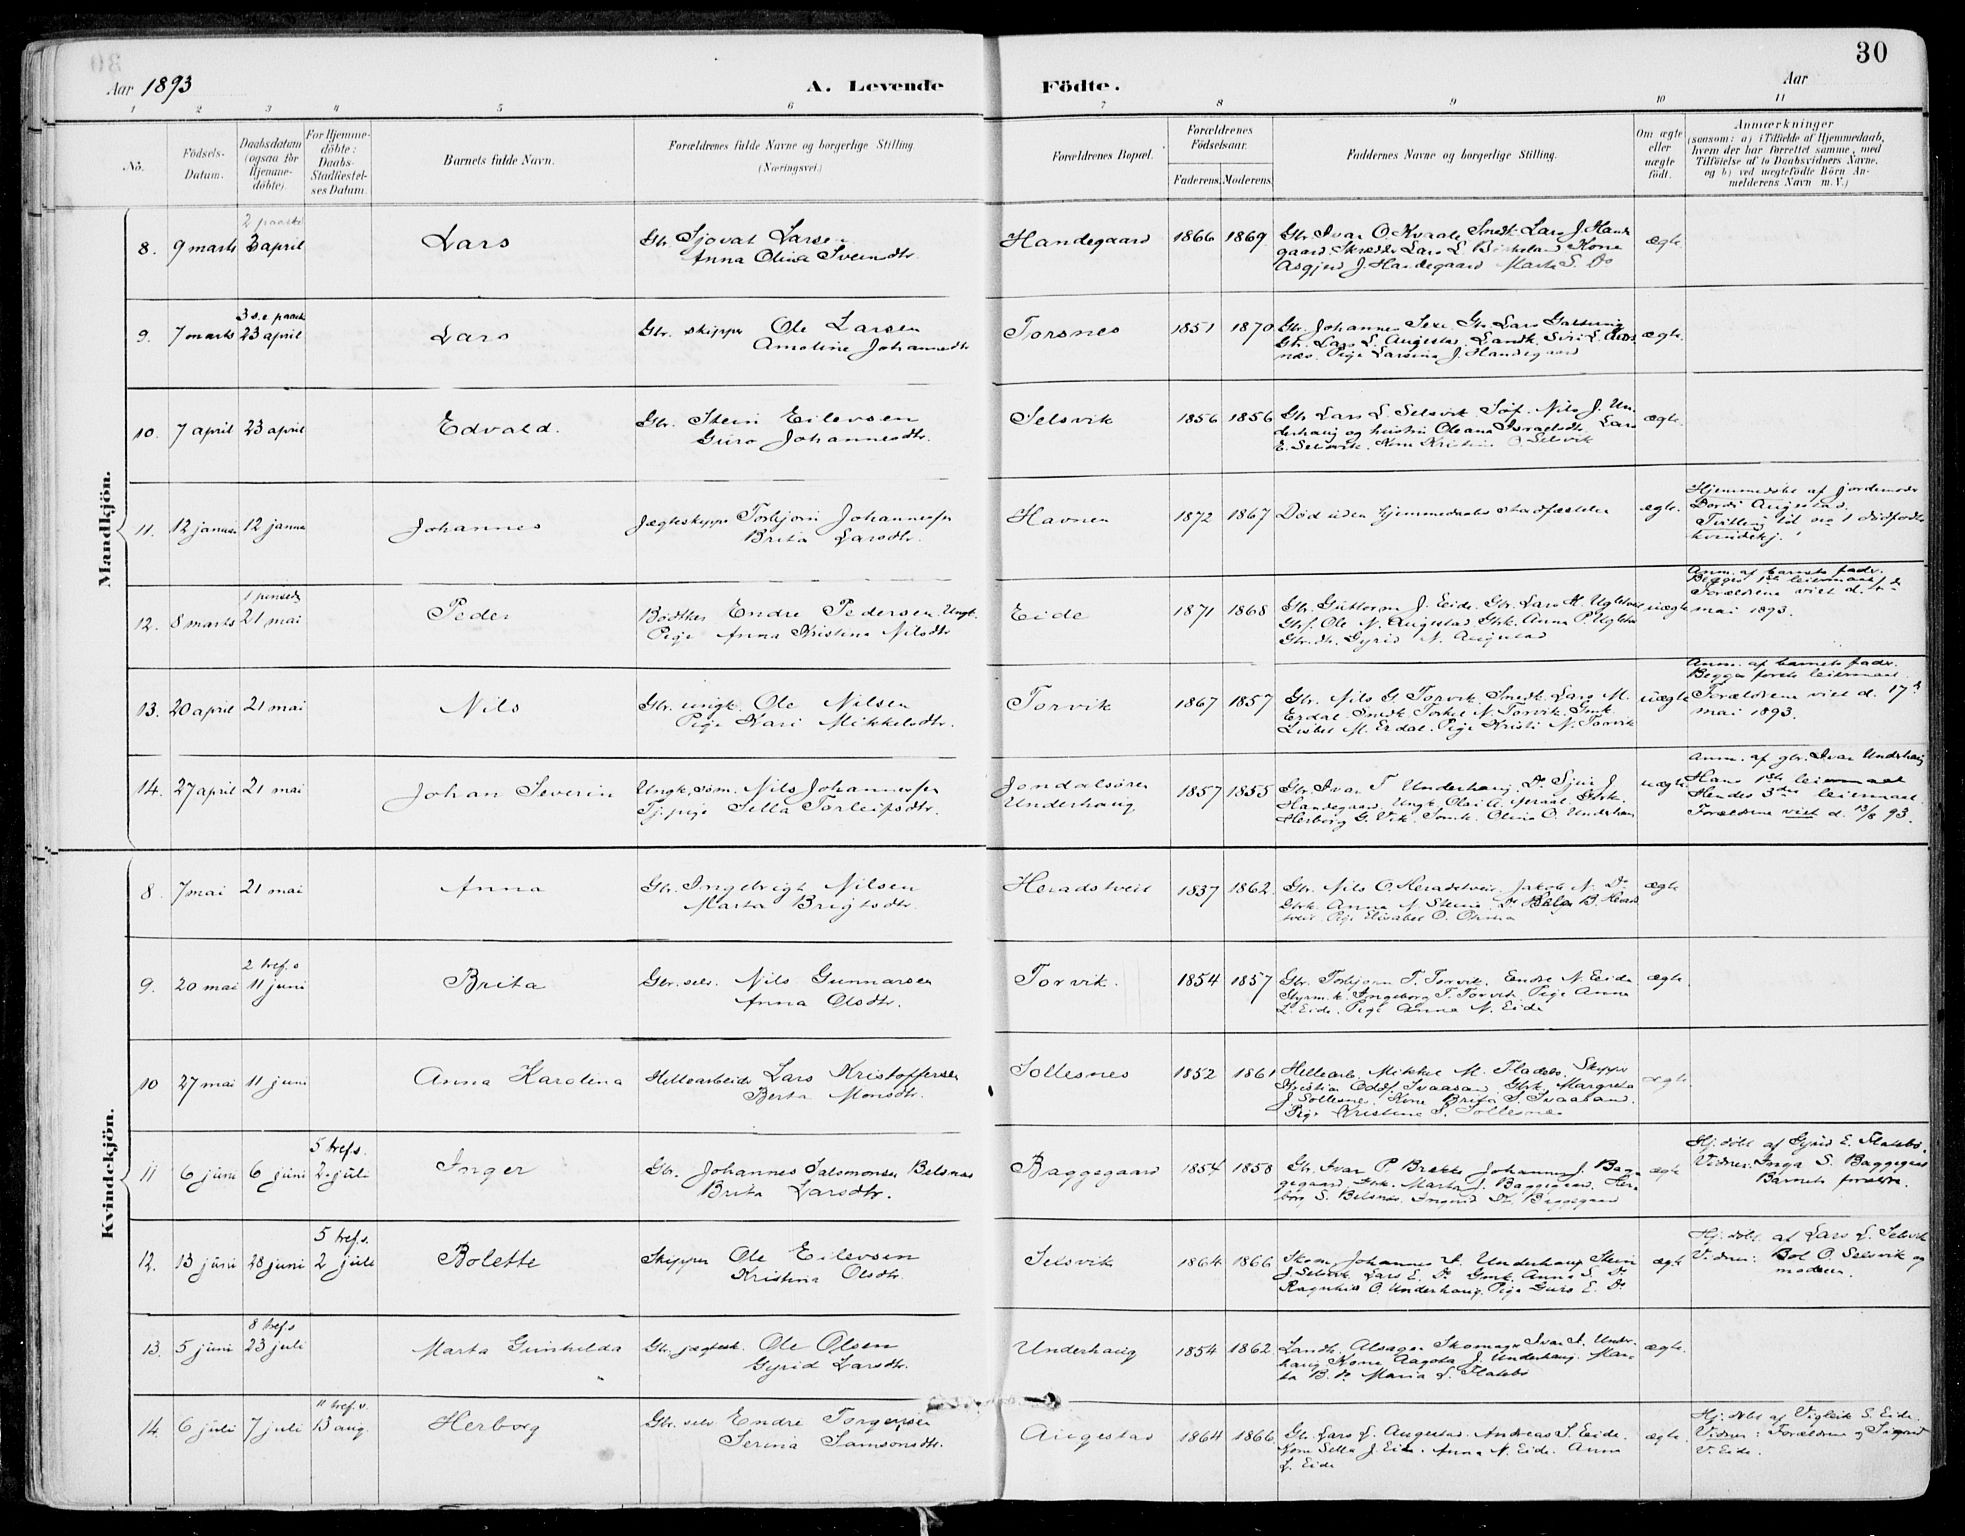 30
Aar 1893
A. Levende Födte.
Aar
1 2 3 4 5 6 7 8 9 10 11
No.
Födsels-Datum.
Daabsdatum (ogsaa for Hjemme-döbte).
For Hjemme-döbte: Daabs-Stadfæstel-ses Datum.
Barnets fulde Navn.
Forældrenes fulde Navne og borgerlige Stilling. (Næringsvei.)
Forældrenes Bopæl.
Forældrenes Födselsaar.
Faderens. Moderens.
Faddernes Navne og borgerlige Stilling.
Om ægte eller uægte födt.
Anmærkninger
(saasom: a) i Tilfælde af Hjemmedaab, hvem der har forrettet samme, med Tilföielse af to Daabsvidners Navne, og b) ved uægtefödte Börn An-melderens Navn m. V.)
Mandkjön.
8. 9 marts 3 april Lars Gbr. Sjovat Larsen Anna Olina Svendtr. Handegaard 1866 1869 Gbr. Ivar O Kvaale Smed Lars J. Hande gaard Skrædder Lars L. Kone Asgjerd J. Handegaard Marta S. Do ægte.
9. 7 marts 3 s.e. paaske 23 april Lars Gbr. skipper Ole Larsen Amoline Johannesdtr Torsnes 1851 1870 Gbr. Johannes Sexe. Gbr Lars Gbr. Lars L. Augestad. Landh. Siri L. Tors næs. Pige Larsina J. Handegaard ægte.
10. 7 april 23 april Edvald. Gbr. Stein Eilevsen Guro Johannesdtr. Selsvik 1856 1856 Gbr Lars L. Selsvik Nils J. Un-derhaug og hustru Oleana Israelsdtr. Lars E. Selsvik. Kone Kristine O. Selsvik ægte.
11. 12 januar 12 janua Johannes Jægteskipper Torbjørn Johannessen Brita Larsdtr. Havnen 1872 1867 Død uden hjemmedaabs stadfæstelse ægte. Hjemmedøbt af jordemoder Bordi Augestad. Tvilling til no 1 dødfødte kvindekj.
12. 8 marts 1 pinsed. 21 mai Peder Bødtker Endre Pedersen Ungk. Pige Anna Kristina Nilsdtr Eide 1871 1868 Gbr. Guttorm J. Eide. Gbr. Lars H. Uglehus Gbrs. Ole N. Augestad Gbrk. Anna P. Gbr.dtr. Gyrid N. Augestad uægte Anm. af barnets fader. Begges 1ste leiermaal. Forældrene viet d. mai 1893.
13. 20 april 21 mai Nils Gbr. ungk. Ole Nilsen Pige Kari Mikkelsdtr. Torvik 1867 1857 Gbr. Nils G Torvik. Smed Lars M. Erdal. Smed Torkel N. Torvik. Gmk. Lisbet M. Erdal. Pige Kristi N. Torvik uægte Anm. af barnets fader. Begges første leiermaal. Forældrene viet d. 17de mai 1893.
14. 27 april 21 mai Johan Severin Ungk. søm. Nils Johannessen Tj.pige Sella Torleifsdtr. Jondalsøren Underhaug 1857 1855 Gbr. Ivar T Underhaug. Do Sjur J. Handegaard. Ungk. Olai A. Gbrk. Herborg G. Vik. Tomk. Olina O. Underhaug uægte Anm. af gbr. Ivar Underhaug Hans 1ste leiermaal Hendes 3die leiermaal. Forældrene viet d. 13/8 93.
Kvindekjön.
8. 7 mai 21 mai Anna Gbr. Ingebrigt Nilsen Marta Brigtsdtr. Heradstveit 1837 1862 Gbr. Nils O. Heradstveit. Jakob N. Do Gbrk. Anna N. Steine. Do B. Herad tveit. Pige Elisabet O. ægte
9. 20 mai 2 tref. s 11 juni Brita Gbr. selv. Nils Gunnarsen Anna Olsdtr. Torvik. 1854 1857 Gbr. Torbjørn T. Torvik. Endre N. Eide Ingeborg T. Torvik. Pige Anna L. Eide. Pige Anna N. Eide ægte.
10 27 mai 11 juni Anna Karolina Hellearbeider Lars Kristoffersen Berta Monsdtr. Sollesnes 1852 1861 Hellearb. Mikkel M. Flatebø. Skipper Kristian Oddf. Svaasand Gbrk. Margreta J. Sollesnes. Kone Brita S. Svaasand. Pige Kristine S. Sollesnes ægte.
11 6 juni 6 juni 5 tref.s. 2 juli Inger Gbr. Johannes Salomonsen Belsnæs Brita Larsdtr. Baggegaard 1854 1858 Gbr. Ivar P. Brekke Johannes J. Bag-gegaard Gbrk. Marta J. Baggegaard. Her-borg S. Belsnæs. Ingerid Do. Baggegaard ægte Hj. døbt af Gyrid E. Flatebø. Vidner: Inga S. Baggegaa Barnets forældre.
12. 13 juni 28 juni 5 tref.s. 2 juli Bolette Skipper Ole Eilevsen Kristina Olsdtr. Selsvik 1864 1866 Skom. Johannes I. Underhaug Stein J. Selsvik Lars E. Do Gmk. Anna S. Do Ragnhild O. Underhaug. Pige Guro E. Do ægte Hj. døbt af Lars L. Selsvik Vidner: Bol O. Selsvik og moderen.
13. 5 juni 8 tref.s 23 juli Marta Gunhilda Gbr. jægtesk. Ole Olsen Gyrid Larsdtr. Underhaug 1854 1862 Landh. Alsager Skomager Ivar I. Under-haug Kone Aagota J. Underhaug. Mar-ta B. Do Maria L. Flatebø ægte.
14. 6 juli 7 juli 11 tref. s. 13 aug. Herborg Gbr. selv Endre Torgersen Serina Samsonsdtr. Augestad 1864 1866 Gbr. Lars L. Augestad. Andreas S. Eide. Kone Sella J. Eide. Anna N. Eide. Anna L. Eide ægte. Hj. døbt af Vigleik S. Eide. Vidner: Forældrene og Sigrid V. Eide.